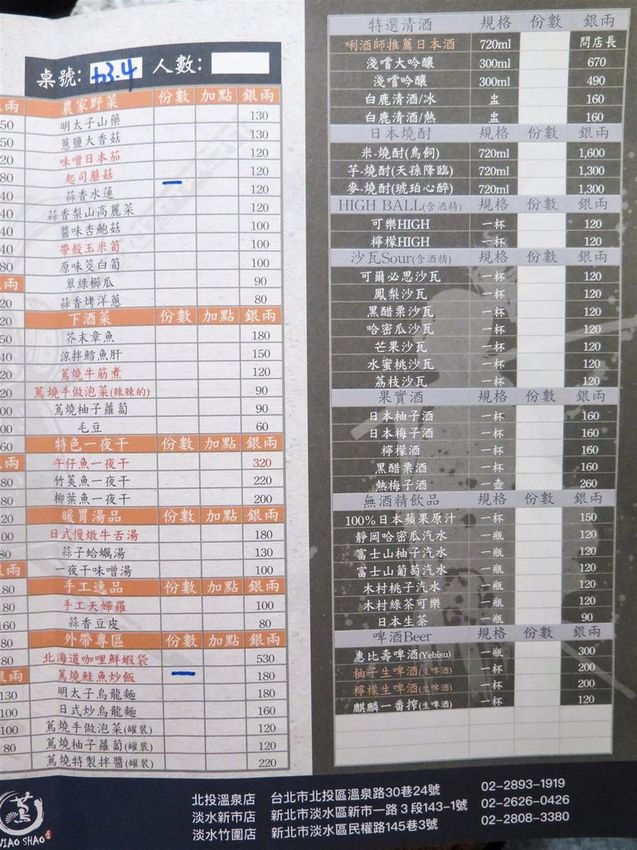 桌號: 13.4 人數:
農家野菜 份數 加點 銀兩
明太子山藥 130
蔥鹽大香菇 130
味噌日本茄 120
起司蘑菇 120
蒜香水蓮 120
蒜香梨山高麗菜 120
醬味杏鮑菇 100
帶殼玉米筍 100
原味筊白筍 100
翠綠櫛瓜 90
蒜香烤洋蔥 80
下酒菜 份數 加點 銀兩
芥末章魚 180
涼拌鱈魚肝 150
蔦燒牛筋煮 120
蔦燒手做泡菜(辣辣的) 90
蔦燒柚子蘿蔔 90
毛豆 60
特色一夜干 份數 加點 銀兩
午仔魚一夜干 320
竹筴魚一夜干 220
柳葉魚一夜干 200
暖胃湯品 份數 加點 銀兩
日式慢燉牛舌湯 180
蒜子蛤蠣湯 130
一夜干味噌湯 100
手工逸品 份數 加點 銀兩
手工天婦羅 100
蒜香豆皮 80
外帶專區 份數 加點 銀兩
北海道咖哩鮮蝦袋 530
蔦燒鮭魚炒飯 180
明太子烏龍麵 180
日式炒烏龍麵 160
蔦燒手做泡菜(罐裝) 120
蔦燒柚子蘿蔔(罐裝) 120
蔦燒特製拌醬(罐裝) 220
特選清酒 規格 份數 銀兩
唎酒師推薦日本酒 720ml 問店長
淺嚐大吟釀 300ml 670
淺嚐吟釀 300ml 490
白鹿清酒/冰 盅 160
白鹿清酒/熱 盅 160
日本燒酎 規格 份數 銀兩
米-燒酎(鳥飼) 720ml 1,600
芋-燒酎(天孫降臨) 720ml 1,300
麥-燒酎(琥珀心醉) 720ml 1,300
HIGH BALL(含酒精) 規格 份數 銀兩
可樂HIGH 一杯 120
檸檬HIGH 一杯 120
沙瓦Sour(含酒精) 規格 份數 銀兩
可爾必思沙瓦 一杯 120
鳳梨沙瓦 一杯 120
黑醋栗沙瓦 一杯 120
哈密瓜沙瓦 一杯 120
芒果沙瓦 一杯 120
水蜜桃沙瓦 一杯 120
荔枝沙瓦 一杯 120
果實酒 規格 份數 銀兩
日本柚子酒 一杯 160
日本梅子酒 一杯 160
檸檬酒 一杯 160
黑醋栗酒 一杯 160
熱梅子酒 一壺 260
無酒精飲品 規格 份數 銀兩
100%日本蘋果原汁 一杯 150
靜岡哈密瓜汽水 一瓶 120
富士山柚子汽水 一瓶 120
富士山葡萄汽水 一瓶 120
木村桃子汽水 一瓶 120
木村綠茶可樂 一瓶 120
日本生茶 一瓶 90
啤酒Beer 規格 份數 銀兩
惠比壽啤酒(Yebisu) 一瓶 300
柚子生啤酒(生啤酒) 一杯 200
檸檬生啤酒(生啤酒) 一杯 200
麒麟一番搾(生啤酒) 一杯 120
北投溫泉店 台北市北投區溫泉路30巷24號 02-2893-1919
淡水新市店 新北市淡水區新市一路3段143-1號 02-2626-0426
淡水竹圍店 新北市淡水區民權路145巷3號 02-2808-3380
NIAO SHAO